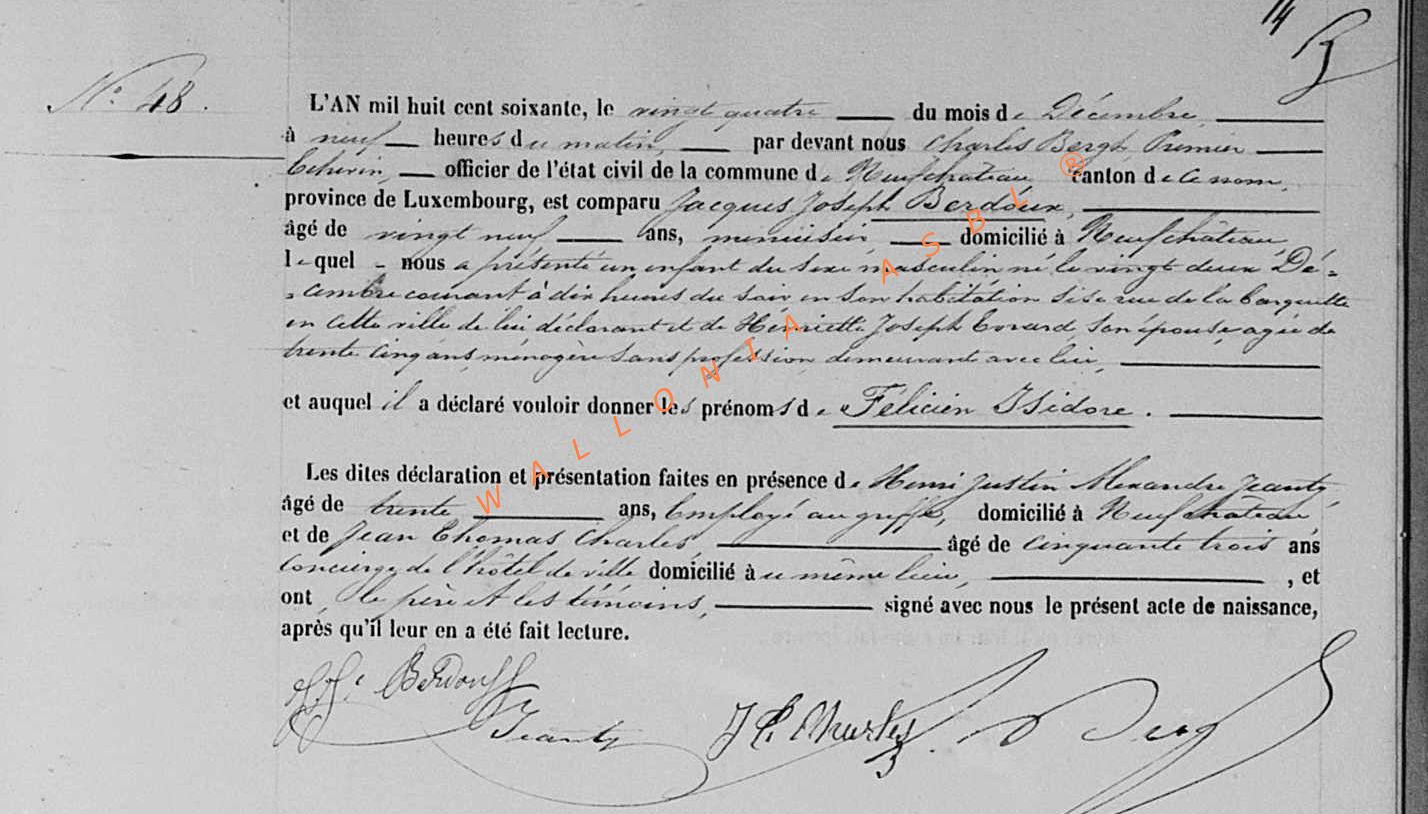 14
N° 48.
L'AN mil huit cent soixante, le vingt quatre du mois de Décembre
à neuf heures du matin, par devant nous Charles Bergh, Premier
Echevin, officier de l'état civil de la commune de Neufchateau canton de ce nom,
province de Luxembourg, est comparu Jacques Joseph Berdoux,
âgé de vingt neuf ans, menuisier, domicilié à Neufchâteau,
lequel nous a présenté un enfant du sexe masculin né le vingt deux Dé=
=cembre courant à dix heures du soir en son habitation sise rue de la Barquette
en cette ville de lui déclarant et de Henriette Joseph Evrard son épouse agée de
trente cinq ans, ménagère sans profession, demeurant avec lui,
et auquel il a déclaré vouloir donner les prénoms de Félicien Isidore.
Les dites déclaration et présentation faites en présence de Henri Justin Alexandre Jeanty,
âgé de trente ans, Employé au greffe, domicilié à Neufchâteau,
et de Jean Thomas Charles âgé de cinquante trois ans
concierge de l'hôtel de ville domicilié au même lieu, , et
ont, le père et les témoins, signé avec nous le présent acte de naissance,
après qu'il leur en a été fait lecture.
J. J. Berdoux
Jeanty J T. Charles
WALLONIA ASBL ®